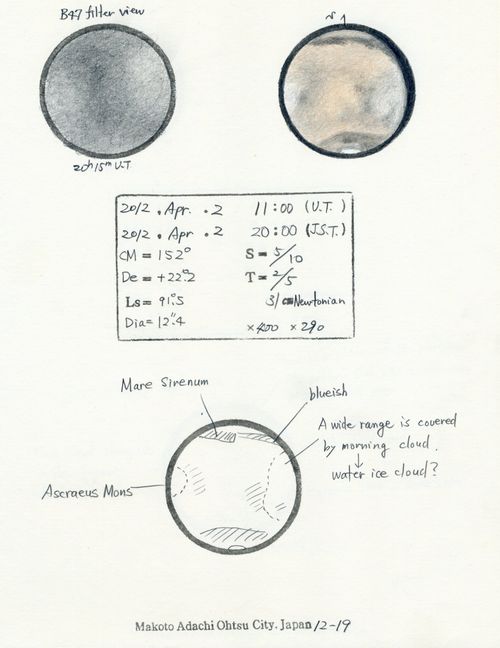 B47 filter view
20h15m U.T
2012 . Apr. . 2 11:00 (U.T.)
2012 . Apr. . 2 20:00 (J.S.T.)
CM = 152° S = 5/10
De = +22.°2 T = 2/5
Ls = 91.°5 31cm Newtonian
Dia = 12."4 ×400 ×290
Mare Sirenum
blueish
A wide range is covered
by morning cloud.
↓
water ice cloud?
Ascraeus Mons
Makoto Adachi Ohtsu City. Japan 12-19